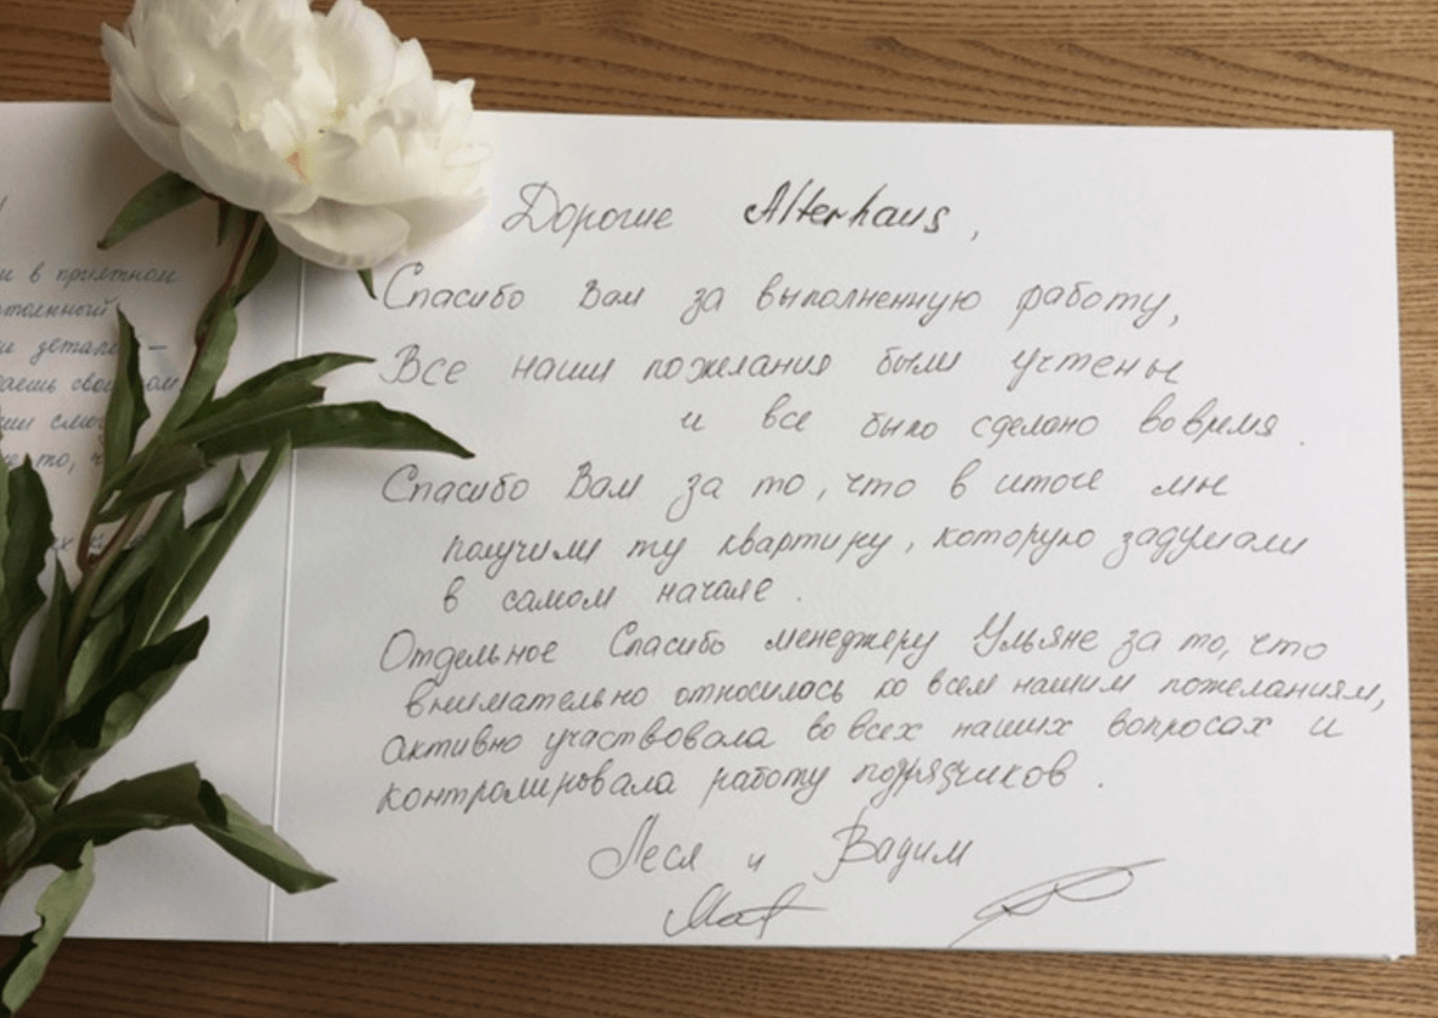 и в приятном
детали —
то,
Дорогие Alterhaus,
Спасибо Вам за выполненную работу,
Все наши пожелания были учтены
и все было сделано вовремя.
Спасибо Вам за то, что в итоге мы
получили ту квартиру, которую задумали
в самом начале.
Отдельное Спасибо менеджеру Ульяне за то, что
внимательно относилась ко всем нашим пожеланиям,
активно участвовала во всех наших вопросах и
контролировала работу подрядчиков.
Леся и Вадим